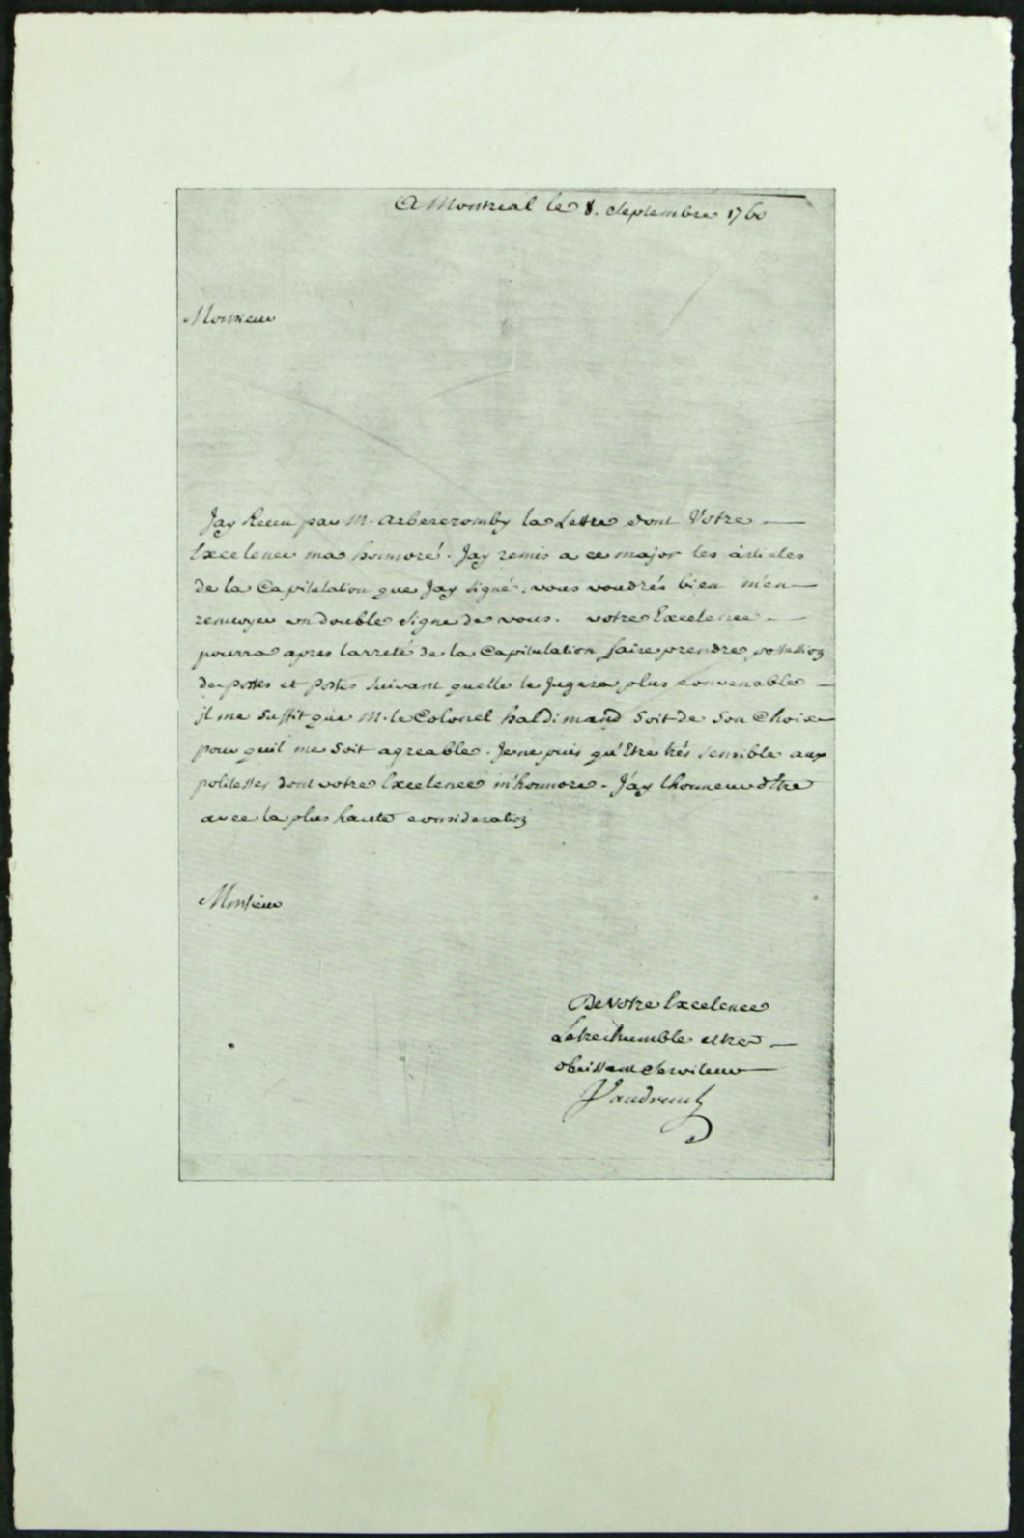 A Montreal le 8. Septembre 1760
Monsieur
Jay Receu par M. Arbercromby la Lettre dont Votre
Excelence ma honnoré. Jay remis a ce major les articles
de la Capitulation que Jay signé, vous voudrés bien m'en
renvoyer un double signé de vous. votre Excelence
pourra apres larreté de la Capitulation faire prendre possession
des portes et postes suivant quelle le Jugera plus convenable
il me suffit que M. le Colonel haldimand soit de son Choix
pour quil me soit agreable. Je ne puis qu'Etre trés sensible aux
politesses dont votre Excelence m'honnore. J'ay lhonneur dEtre
avec la plus haute consideration
Monsieur
De Votre Excelence
Le tres humble et tres
obeissant Serviteur
Vaudreuil